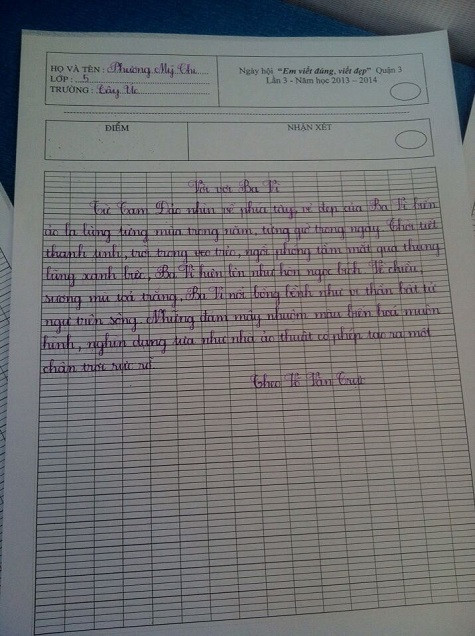 HỌ VÀ TÊN : Phương Mỹ Chi
LỚP : 5
TRƯỜNG : Cây Me
Ngày hội "Em viết đúng, viết đẹp" Quận 3
Lần 3 - Năm học 2013 – 2014
ĐIỂM
NHẬN XÉT
Vời vợi Ba Vì
Từ Tam Đảo nhìn về phía tây, vẻ đẹp của Ba Vì biến
ảo lạ lùng từng mùa trong năm, từng giờ trong ngày. Thời tiết
thanh tịnh, trời trong veo trẻo, ngồi phóng tầm mắt qua thung
lũng xanh biếc, Ba Vì hiện lên như hòn ngọc bích. Về chiều,
sương mù toả trắng, Ba Vì nổi bồng bềnh như vị thần bất tử
ngự trên sóng. Những đám mây nhuộm màu biến hoá muôn
hình, nghìn dạng tựa như nhà ảo thuật có phép tạo ra một
chân trời rực rỡ.
Theo Võ Văn Trực